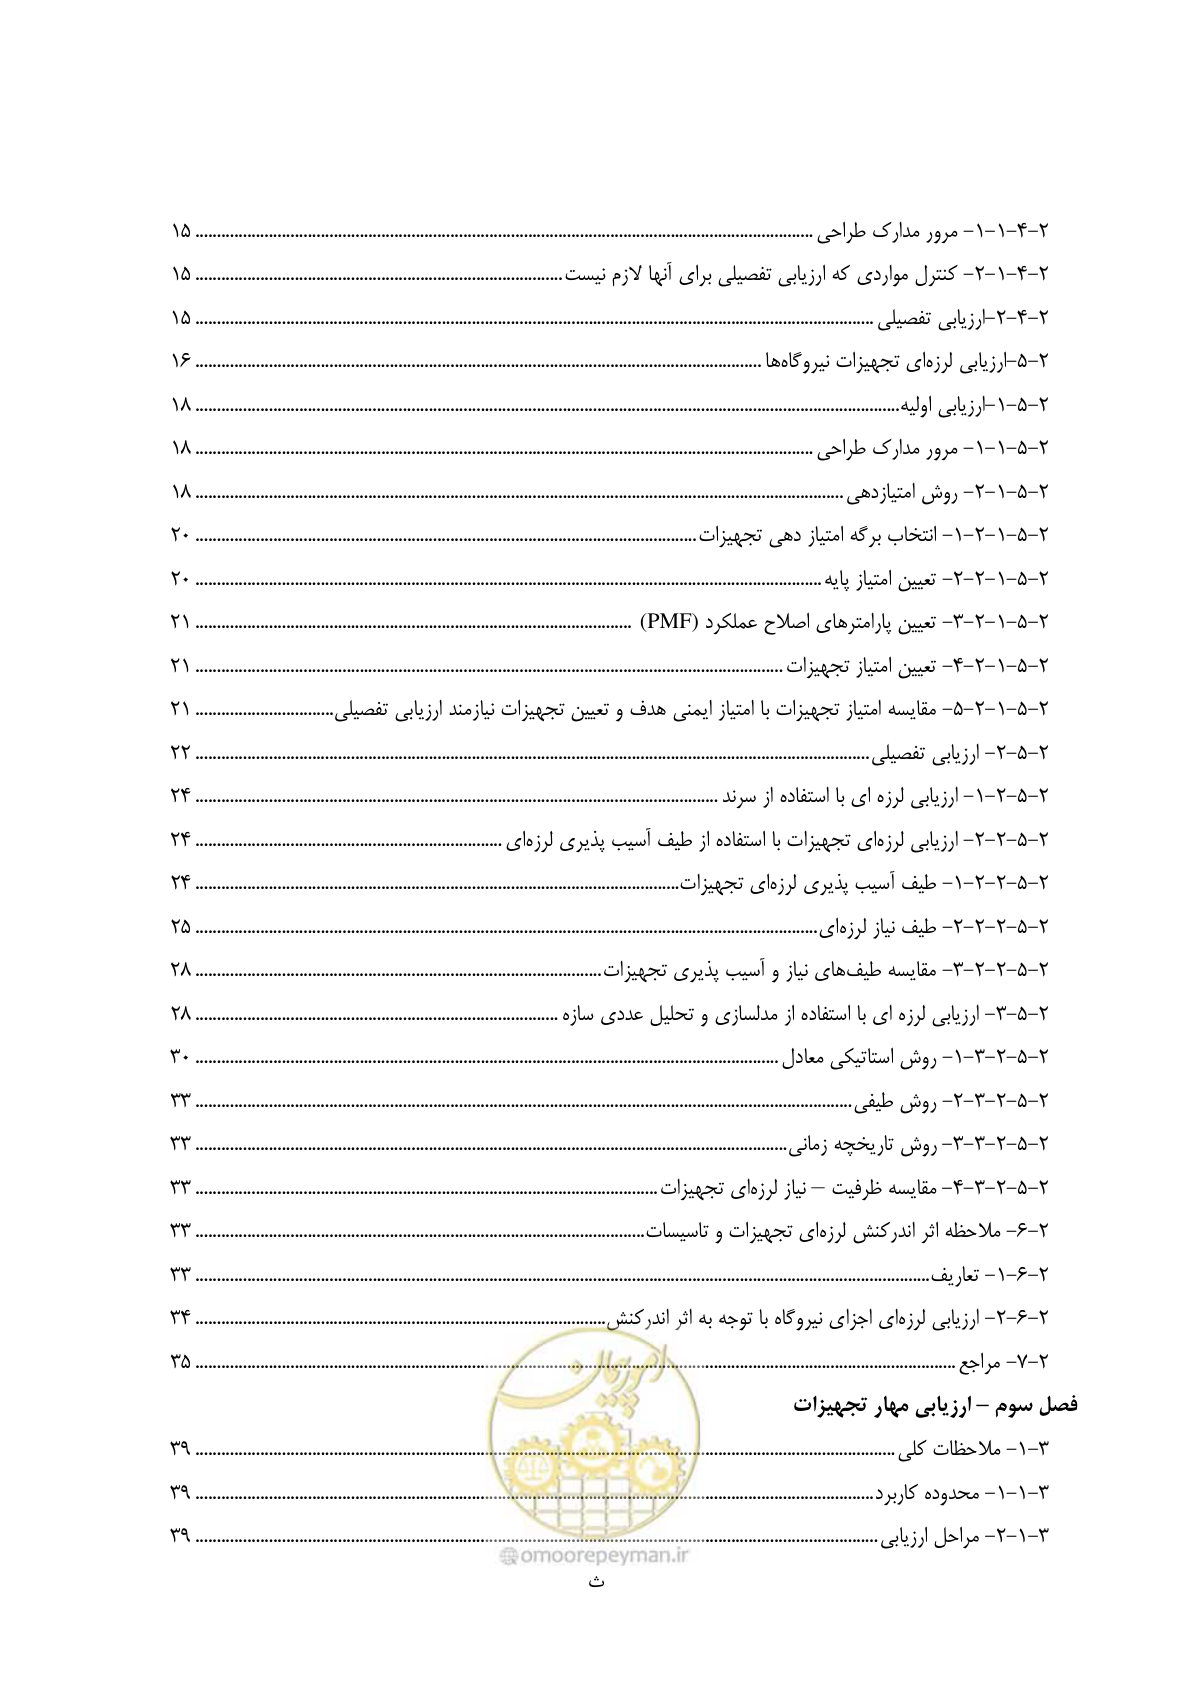 ۲-۴-۱-۱- مرور مدارک طراحی ........ ۱۵
۲-۴-۱-۲- کنترل مواردی که ارزیابی تفصیلی برای آنها لازم نیست ........ ۱۵
۲-۴-۲-ارزیابی تفصیلی ........ ۱۵
۲-۵-ارزیابی لرزه‌ای تجهیزات نیروگاه‌ها ........ ۱۶
۲-۵-۱-ارزیابی اولیه ........ ۱۸
۲-۵-۱-۱- مرور مدارک طراحی ........ ۱۸
۲-۵-۱-۲- روش امتیازدهی ........ ۱۸
۲-۵-۱-۲-۱- انتخاب برگه امتیاز دهی تجهیزات ........ ۲۰
۲-۵-۱-۲-۲- تعیین امتیاز پایه ........ ۲۰
۲-۵-۱-۲-۳- تعیین پارامترهای اصلاح عملکرد (PMF) ........ ۲۱
۲-۵-۱-۲-۴- تعیین امتیاز تجهیزات ........ ۲۱
۲-۵-۱-۲-۵- مقایسه امتیاز تجهیزات با امتیاز ایمنی هدف و تعیین تجهیزات نیازمند ارزیابی تفصیلی ........ ۲۱
۲-۵-۲- ارزیابی تفصیلی ........ ۲۲
۲-۵-۲-۱- ارزیابی لرزه ای با استفاده از سرند ........ ۲۴
۲-۵-۲-۲- ارزیابی لرزه‌ای تجهیزات با استفاده از طیف آسیب پذیری لرزه‌ای ........ ۲۴
۲-۵-۲-۲-۱- طیف آسیب پذیری لرزه‌ای تجهیزات ........ ۲۴
۲-۵-۲-۲-۲- طیف نیاز لرزه‌ای ........ ۲۵
۲-۵-۲-۲-۳- مقایسه طیف‌های نیاز و آسیب پذیری تجهیزات ........ ۲۸
۲-۵-۳- ارزیابی لرزه ای با استفاده از مدلسازی و تحلیل عددی سازه ........ ۲۸
۲-۵-۲-۳-۱- روش استاتیکی معادل ........ ۳۰
۲-۵-۲-۳-۲- روش طیفی ........ ۳۳
۲-۵-۲-۳-۳- روش تاریخچه زمانی ........ ۳۳
۲-۵-۲-۳-۴- مقایسه ظرفیت – نیاز لرزه‌ای تجهیزات ........ ۳۳
۲-۶- ملاحظه اثر اندرکنش لرزه‌ای تجهیزات و تاسیسات ........ ۳۳
۲-۶-۱- تعاریف ........ ۳۳
۲-۶-۲- ارزیابی لرزه‌ای اجزای نیروگاه با توجه به اثر اندرکنش ........ ۳۴
۲-۷- مراجع ........ ۳۵
امور پیمان
فصل سوم – ارزیابی مهار تجهیزات
۳-۱- ملاحظات کلی ........ ۳۹
۳-۱-۱- محدوده کاربرد ........ ۳۹
۳-۱-۲- مراحل ارزیابی ........ ۳۹
@omoorepeyman.ir
ث